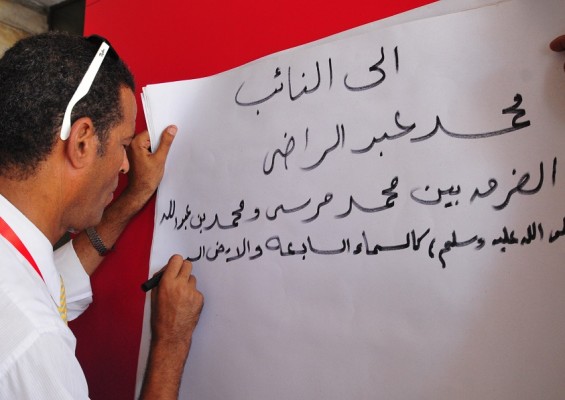 الى النائب
محمد عبد الراضى
الفرق بين محمد مرسى ومحمد بن عبد الله
الله عليه وسلم) كالسماء السابعة والارض